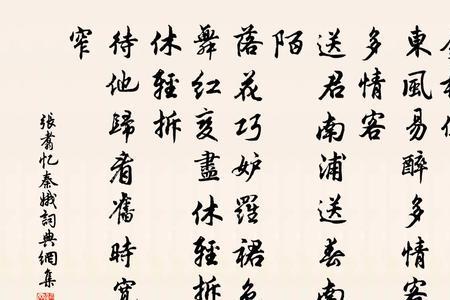 東風易醉多情客
多情客
送君南浦送春南
陌
落花巧妒羅裙色
舞紅変盡休輕拆
休輕拆
待他歸看舊時寬
窄
張翥忆秦娥詞典網集